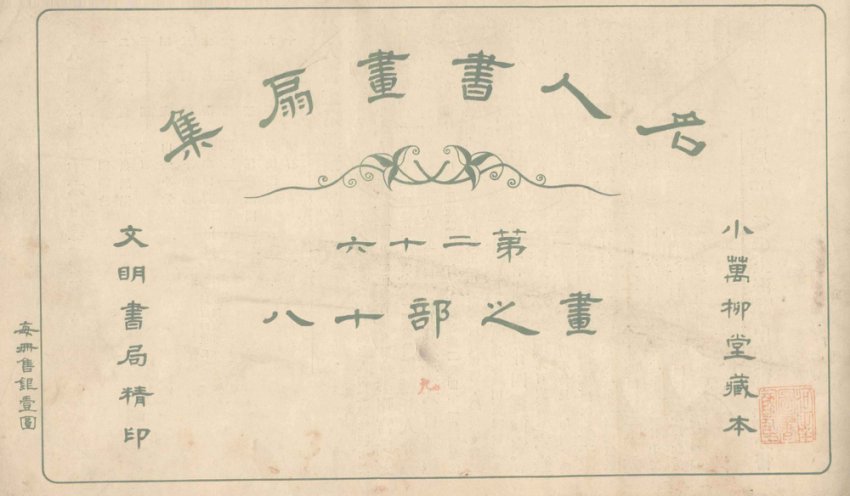 名人書畫扇集
第二十六
畫之部十八
小萬柳堂藏本
文明書局精印
每冊售銀壹圓